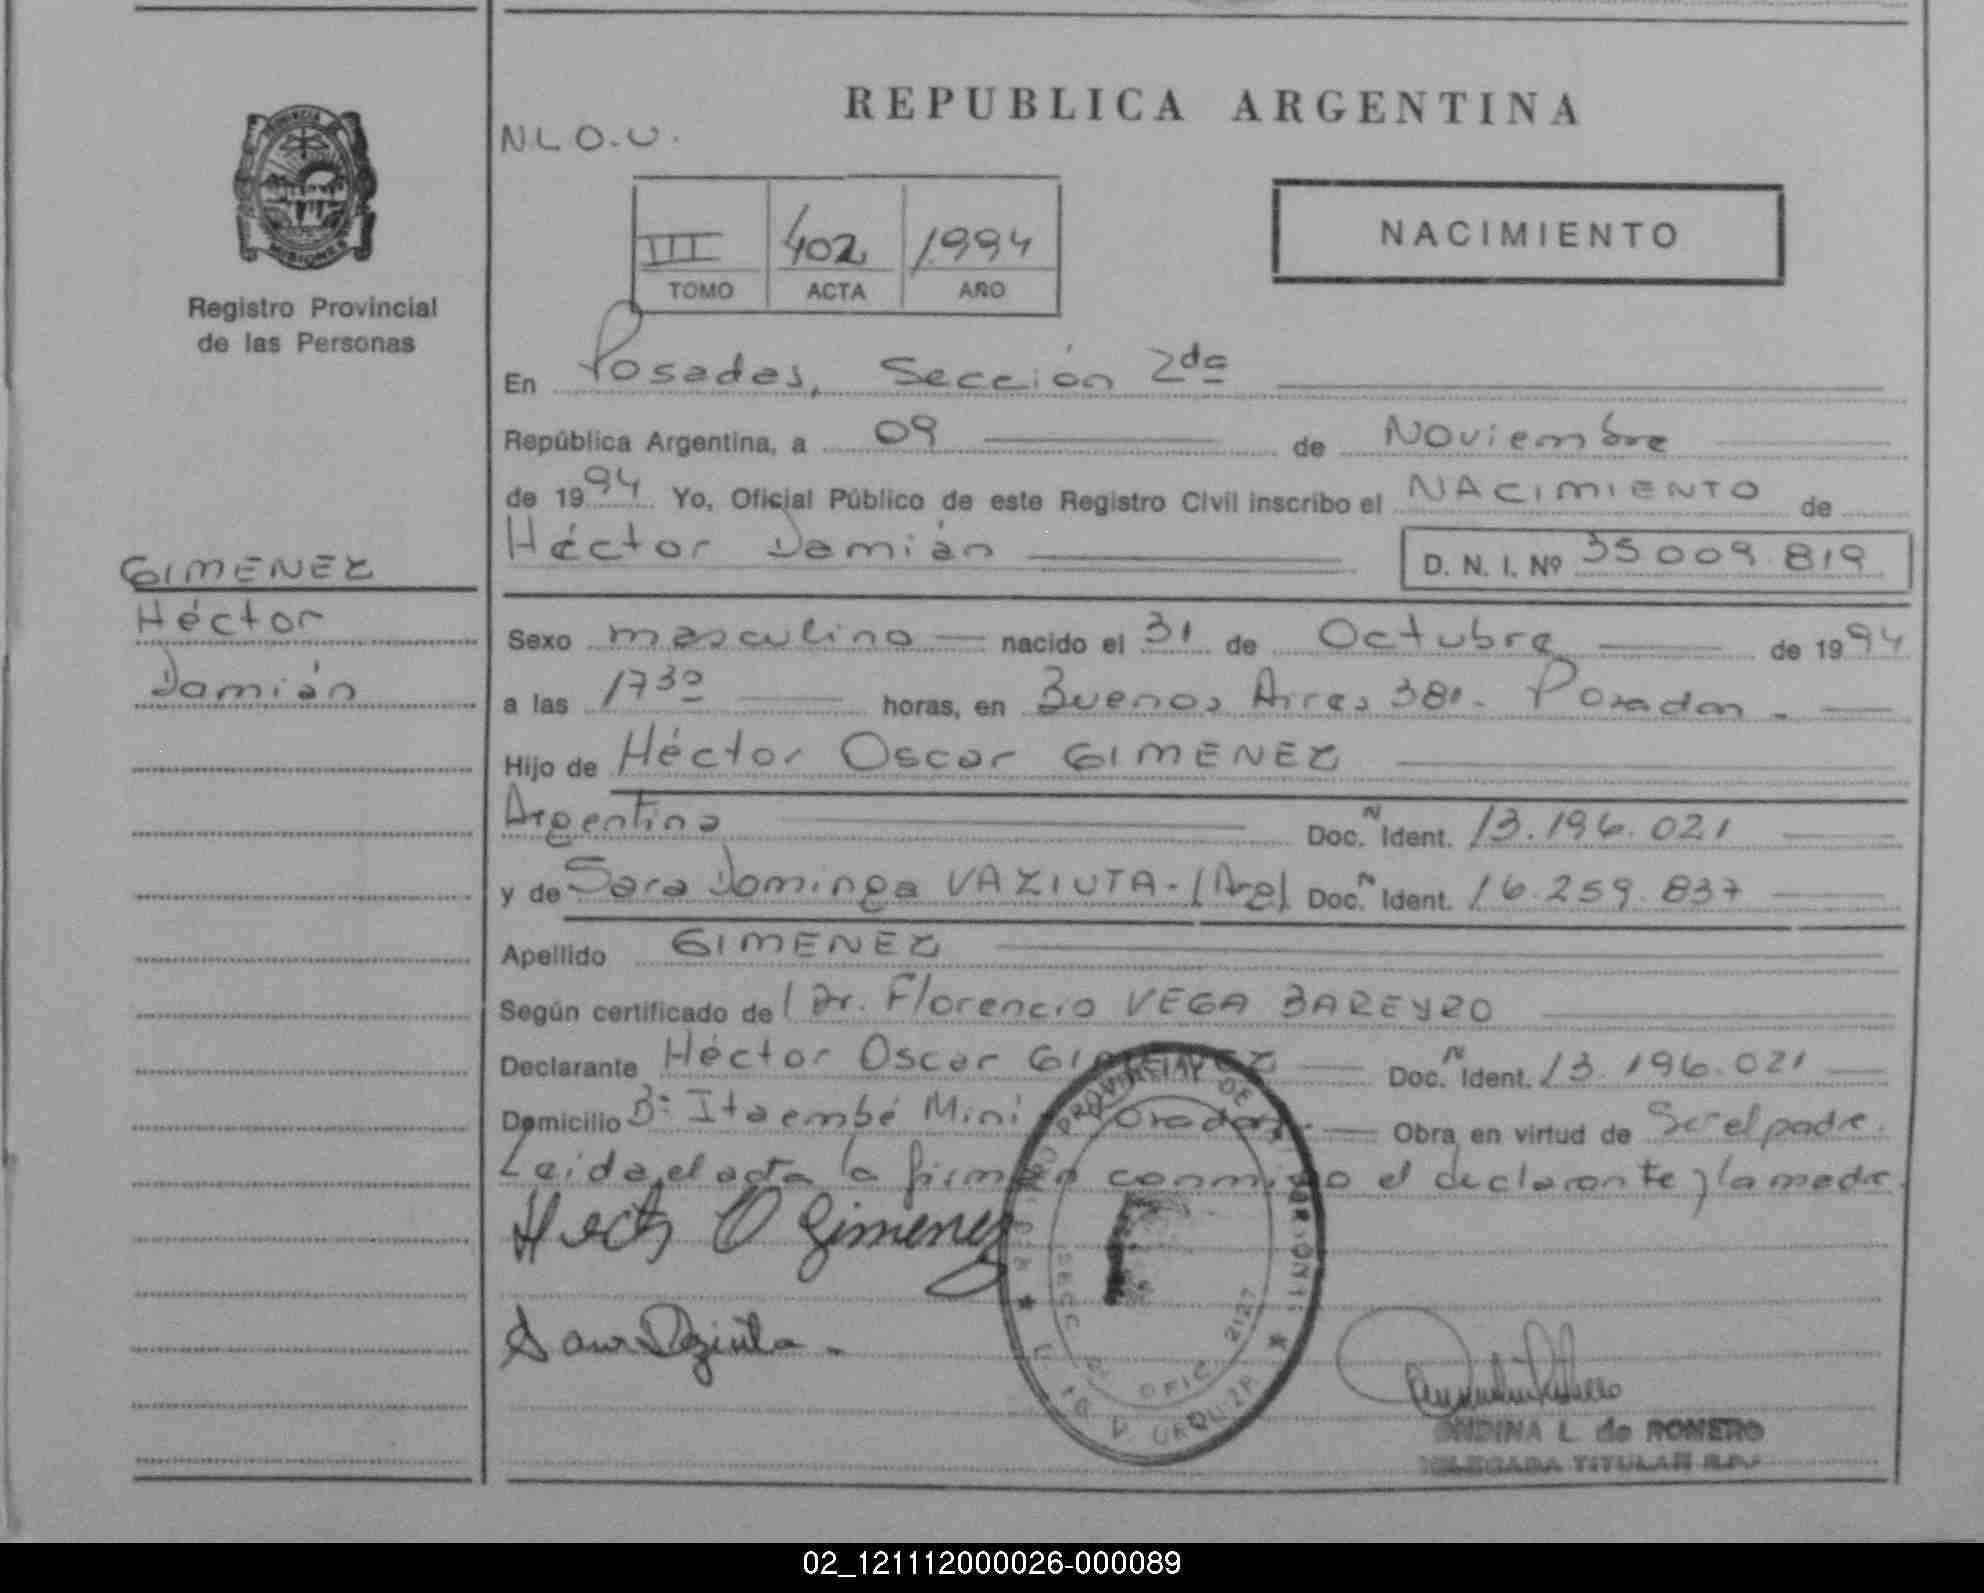 REPUBLICA ARGENTINA
N L O. U.
PROVINCIA DE
MISIONES
Registro Provincial
de las Personas
III 402 1994
TOMO ACTA AÑO
NACIMIENTO
En Posadas, Sección 2da
República Argentina, a 09 de Noviembre
de 1994 Yo, Oficial Público de este Registro Civil inscribo el NACIMIENTO de
Héctor Damián D. N. I. Nº 35 009.819
GIMENEZ
Héctor
Damián
Sexo masculino nacido el 31 de Octubre de 1994
a las 1730 horas, en Buenos Aires 381. Posadas.
Hijo de Héctor Oscar GIMENEZ
Argentino Doc. N Ident. 13.196.021
y de Sara Dominga VAZIUTA - (Arg) Doc. N Ident. 16.259.837
Apellido GIMENEZ
Según certificado de Dr. Florencio VEGA BAREYRO
Declarante Héctor Oscar GIMENEZ Doc. N Ident. 13.196.021
Domicilio Bº Itaembé Mini Posadas. Obra en virtud de Ser el padre.
Leida el acta la firman conmigo el declarante y la madre.
Hector O Gimenez
SECC 2ª OFIC 2127
URQUIZA
ONDINA L. de ROMERO
DELEGADA TITULAR R.P.
02_121112000026-000089